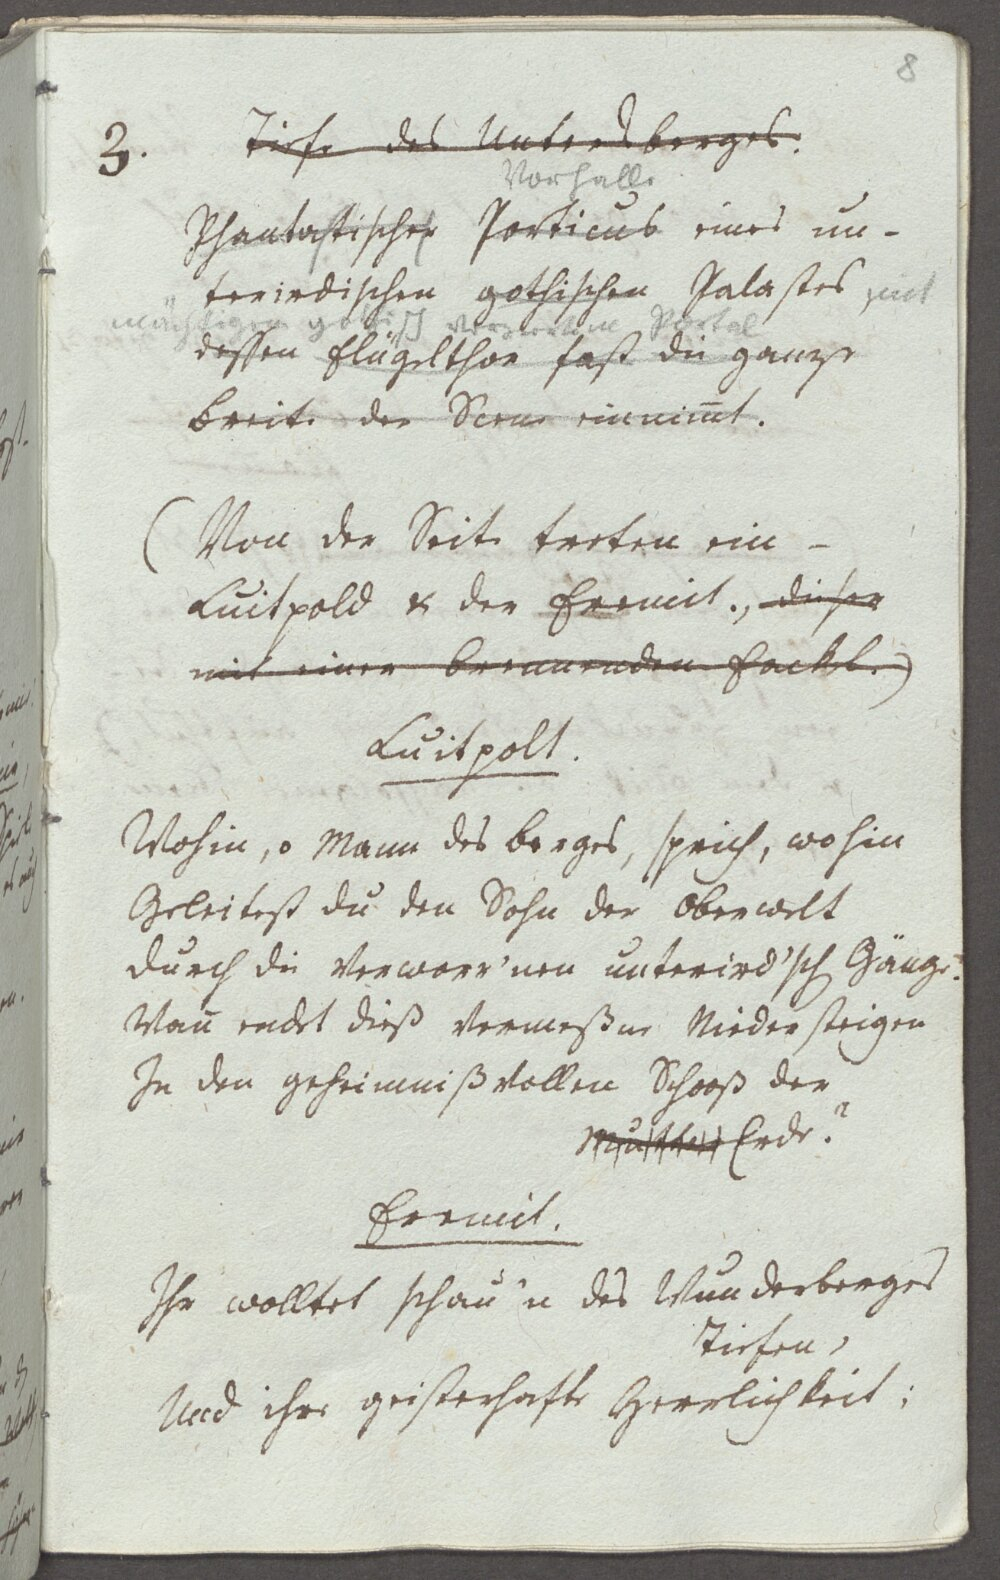 8
3. Tiefe des Untersberges.
Vorhalle
Phantastischer Porticus eines un-
terirdischen gothischen Palastes mit
mächtigem gotisch verziertem Portal
dessen Flügelthor fast die ganze
Breite der Scene einnim̅t.
(Von der Seite treten ein –
Luitpold & der Eremit., dieser
mit einer brennenden Fackel.)
Luitpolt.
Wohin, o Mann des Berges, sprich, wohin
Geleitest du den Sohn der Oberwelt
durch die verworr'nen unterird'sch Gänge.
Wan̅ endet dieß vermeßne Niedersteigen
In den geheimnißvollen Schooß der
Mutter Erde?
Eremit.
Ihr wolltet schau'n des Wunderberges
Tiefen,
Und ihre geisterhafte Herrlichkeit;